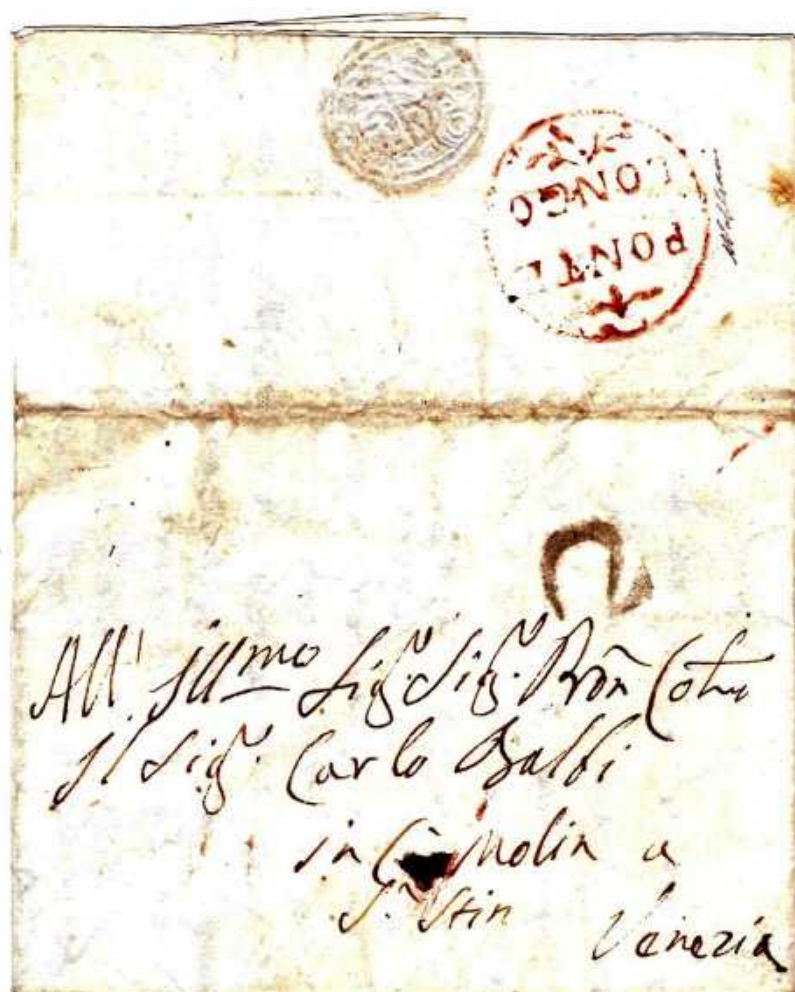 PONTE
LONGO
All' Ill.mo Sig.r Sig.r Prōn Col.mo
Il Sig.r Carlo Balbi
in Cà Molin a
S.n Stin
Venezia